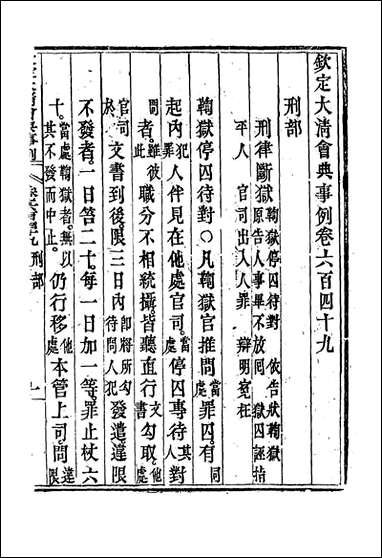 欽定大清會典事例卷六百四十九
刑部
刑律斷獄 鞫獄停囚待對 依告狀鞫獄 原告人事畢不放回 獄囚誣指
平人 官司出入人罪 辯明冤枉
鞫獄停囚待對○凡鞫獄官推問當處罪囚有同
起內犯罪人伴見在他處官司當處停囚專待其人對
問者雖彼此職分不相統攝皆聽直行文書勾取他處
官司於文書到後限三日內即將所勾待問人犯發遣違限
不發者一日笞二十每一日加一等罪止杖六
十當處鞫獄者無以其不發而中止仍行移他處本管上司問違
刑部